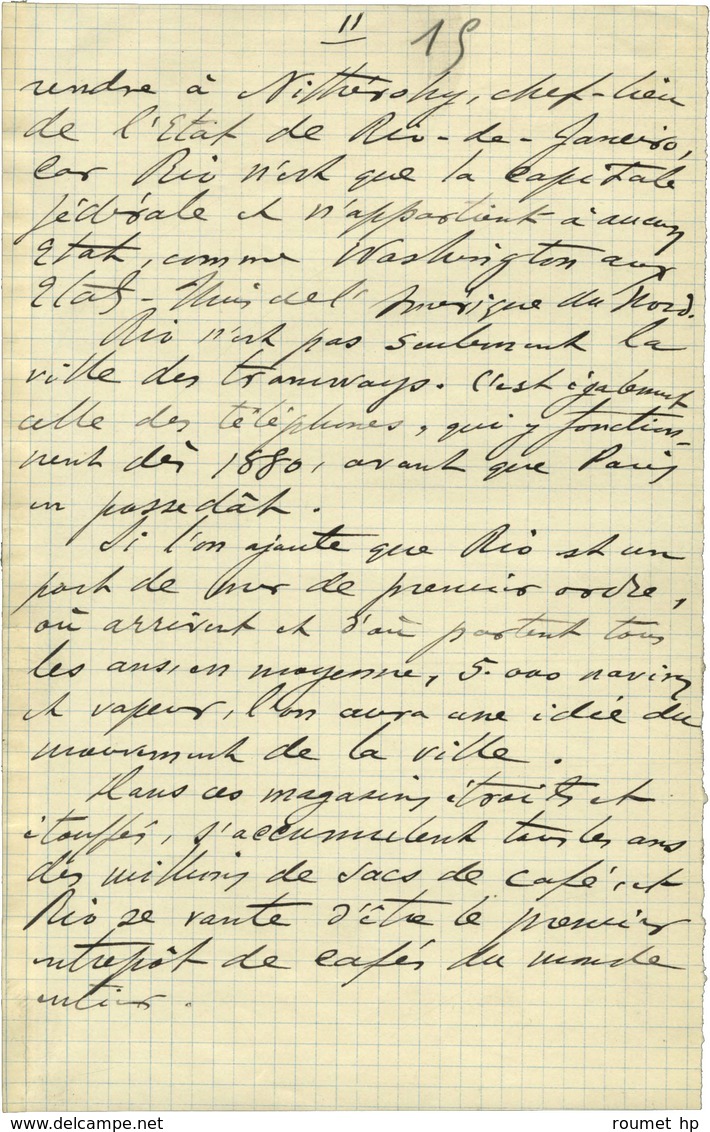 11 15
rendre à Nithérohy, chef-lieu
de l'Etat de Rio-de-Janeiro,
car Rio n'est que la capitale
fédérale et n'appartient à aucun
Etat, comme Washington aux
Etats-Unis de l'Amérique du Nord.
Rio n'est pas seulement la
ville des tramways. C'est également
celle des téléphones, qui y fonction-
nent dès 1880, avant que Paris
en possedât.
Si l'on ajoute que Rio est un
port de mer de premier ordre,
où arrivent et d'où partent tous
les ans, en moyenne, 5.000 navires
et vapeurs, l'on aura une idée du
mouvement de la ville.
Dans ces magasins étroits et
étouffés, s'accumulent tous les ans
des millions de sacs de café, et
Rio se vante d'être le premier
entrepôt de cafés du monde
entier.
delcampe.net
roumet hp